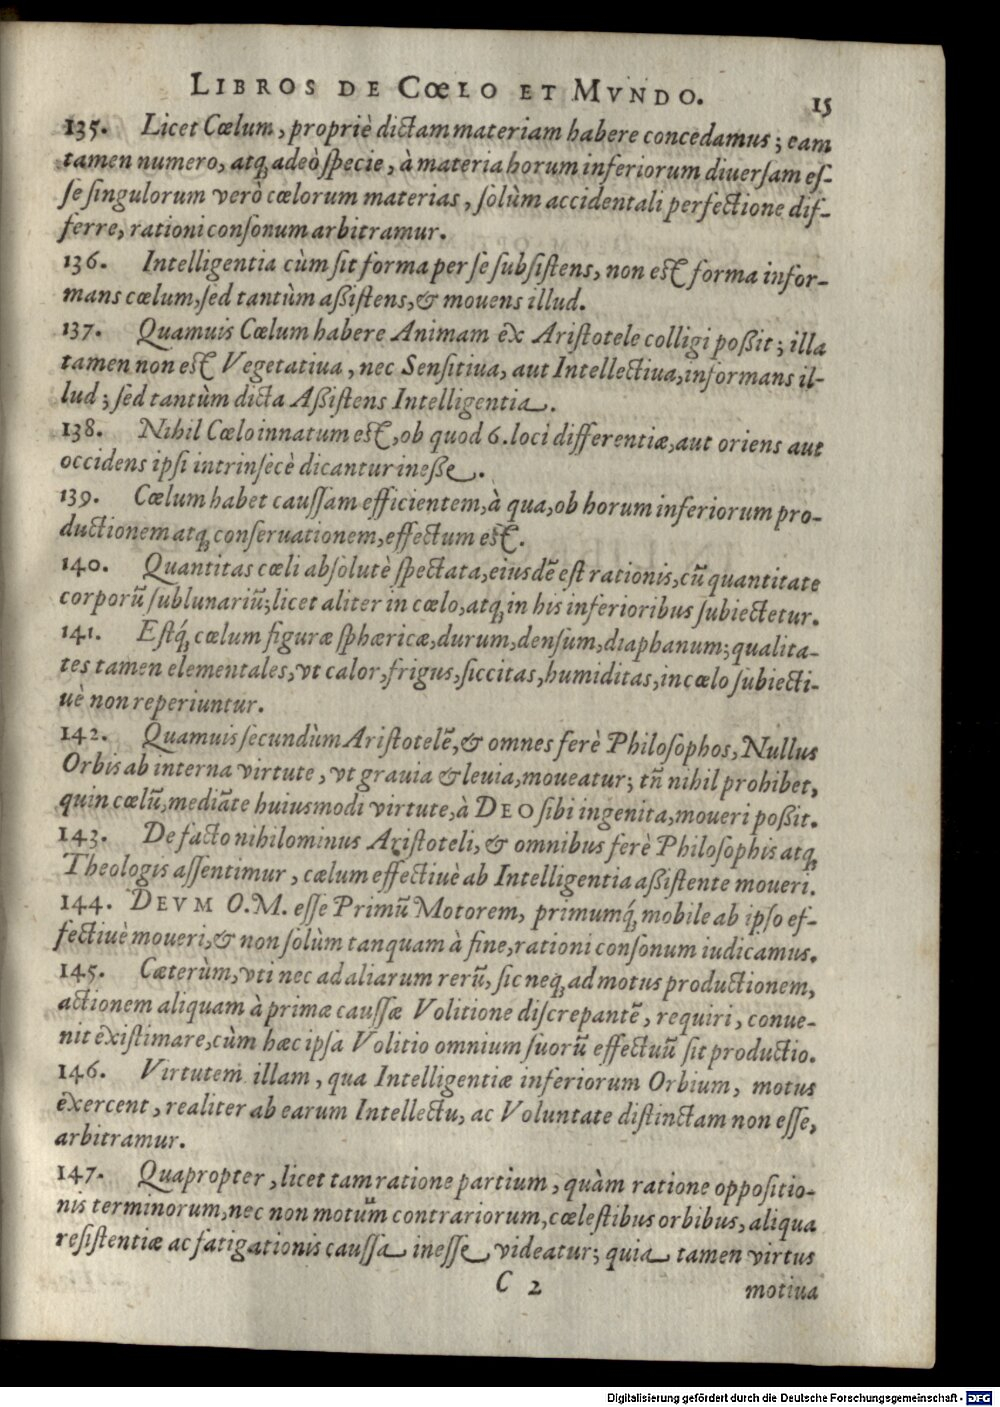 LIBROS DE CœLO ET MVNDO. 15
135. Licet Cœlum, propriè dictam materiam habere concedamus; eam
tamen numero, atq; adeò specie, à materia horum inferiorum diuersam es-
se singulorum verò cœlorum materias, solùm accidentali perfectione dif-
ferre, rationi consonum arbitramur.
136. Intelligentia cùm sit forma per se subsistens, non est forma infor-
mans cœlum, sed tantùm aßistens, & mouens illud.
137. Quamuis Cœlum habere Animam ex Aristotele colligi poßit; illa
tamen non est Vegetatiua, nec Sensitiua, aut Intellectiua, informans il-
lud; sed tantùm dicta Aßistens Intelligentia.
138. Nihil Cœlo innatum est, ob quod 6. loci differentiæ, aut oriens aut
occidens ipsi intrinsecè dicantur ineße.
139. Cœlum habet caussam efficientem, à qua, ob horum inferiorum pro-
ductionem atq; conseruationem, effectum est.
140. Quantitas cœli absolutè spectata, eiusdē est rationis, cū quantitate
corporū sublunariū; licet aliter in cœlo, atq; in his inferioribus subiectetur.
141. Estq́; cœlum figuræ sphæricæ, durum, densum, diaphanum; qualita-
tes tamen elementales, vt calor, frigus, siccitas, humiditas, in cœlo subiecti-
uè non reperiuntur.
142. Quamuis secundùm Aristotelē, & omnes ferè Philosophos, Nullus
Orbis ab interna virtute, vt grauia & leuia, moueatur; tñ nihil prohibet,
quin cœlū, mediāte huiusmodi virtute, à DEO sibi ingenita, moueri poßit.
143. De facto nihilominus Aristoteli, & omnibus ferè Philosophis atq;
Theologis assentimur, cælum effectiuè ab Intelligentia aßistente moueri.
144. DEVM O.M. esse Primū Motorem, primumq́; mobile ab ipso ef-
fectiuè moueri, & non solùm tanquam à fine, rationi consonum iudicamus.
145. Cæterùm, vti nec ad aliarum rerū, sic neq; ad motus productionem,
actionem aliquam à primæ caussæ Volitione discrepantē, requiri, conue-
nit existimare, cùm hæc ipsa Volitio omnium suorū effectuū sit productio.
146. Virtutem illam, qua Intelligentiæ inferiorum Orbium, motus
exercent, realiter ab earum Intellectu, ac Voluntate distinctam non esse,
arbitramur.
147. Quapropter, licet tam ratione partium, quàm ratione oppositio-
nis terminorum, nec non motuum contrariorum, cœlestibus orbibus, aliqua
resistentiæ ac fatigationis caussa inesse videatur; quia tamen virtus
C 2 motiua
Digitalisierung gefördert durch die Deutsche Forschungsgemeinschaft - DFG